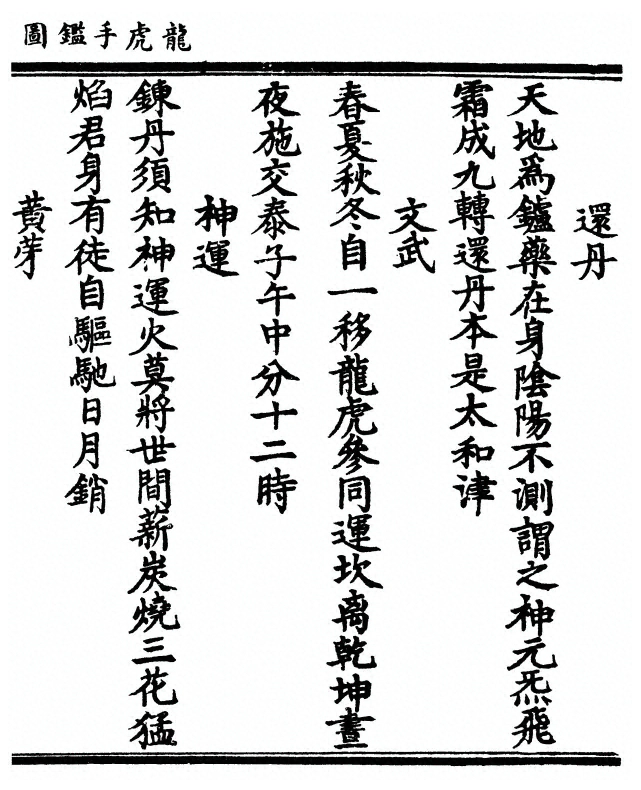 龍虎手鑑圖
還丹
天地爲鑪藥在身陰陽不測謂之神元炁飛
霜成九轉還丹本是太和津
文武
春夏秋冬自一移龍虎參同運坎离乾坤晝
夜施交泰子午中分十二時
神運
鍊丹須知神運火莫將世間薪炭燒三花猛
焰君身有徒自驅馳日月銷
黃芽